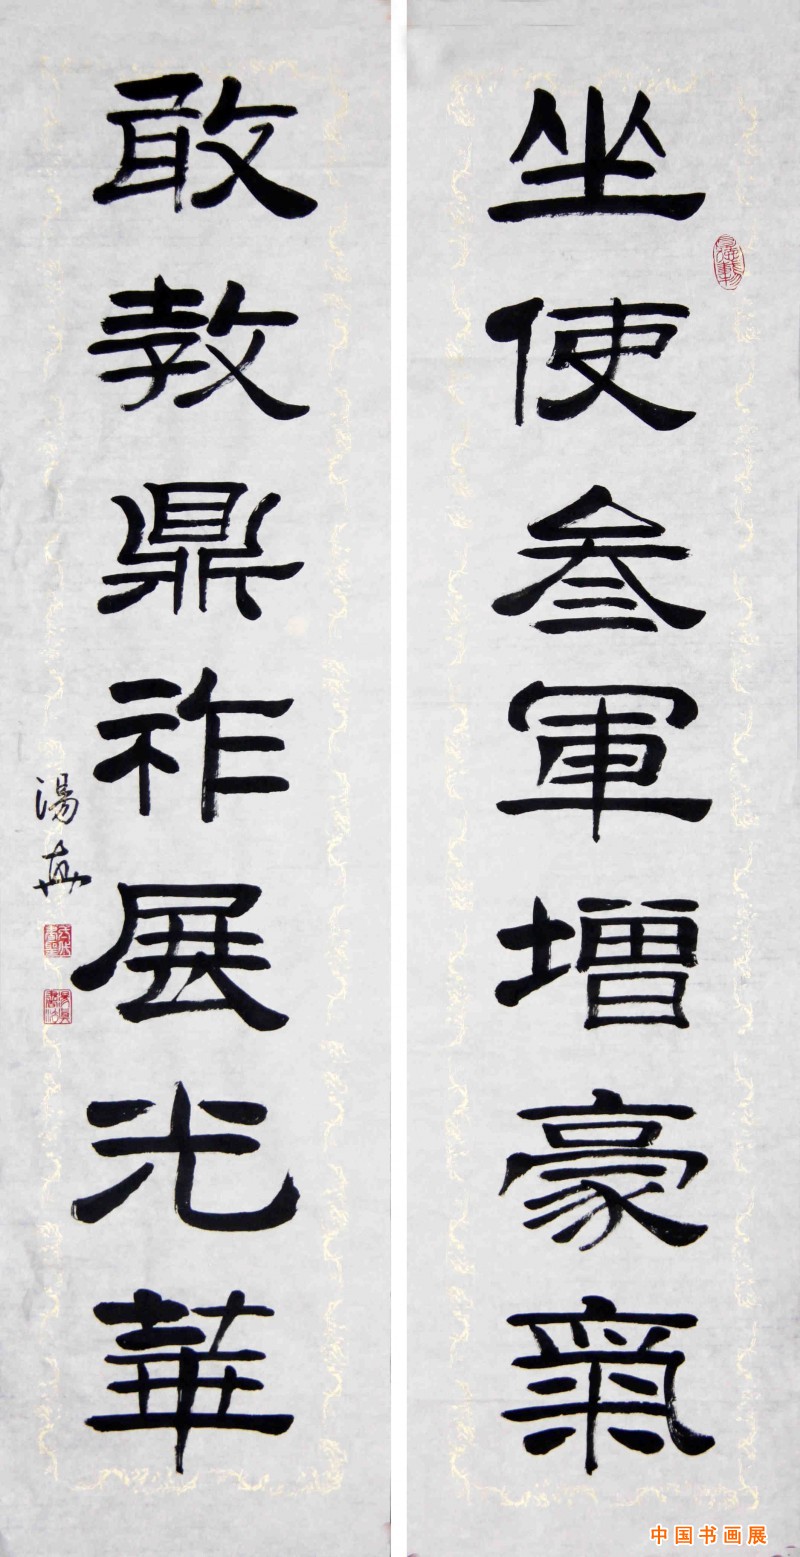 坐使叄軍增豪氣
敢教鼎祚展光華
湯真
中国书画展